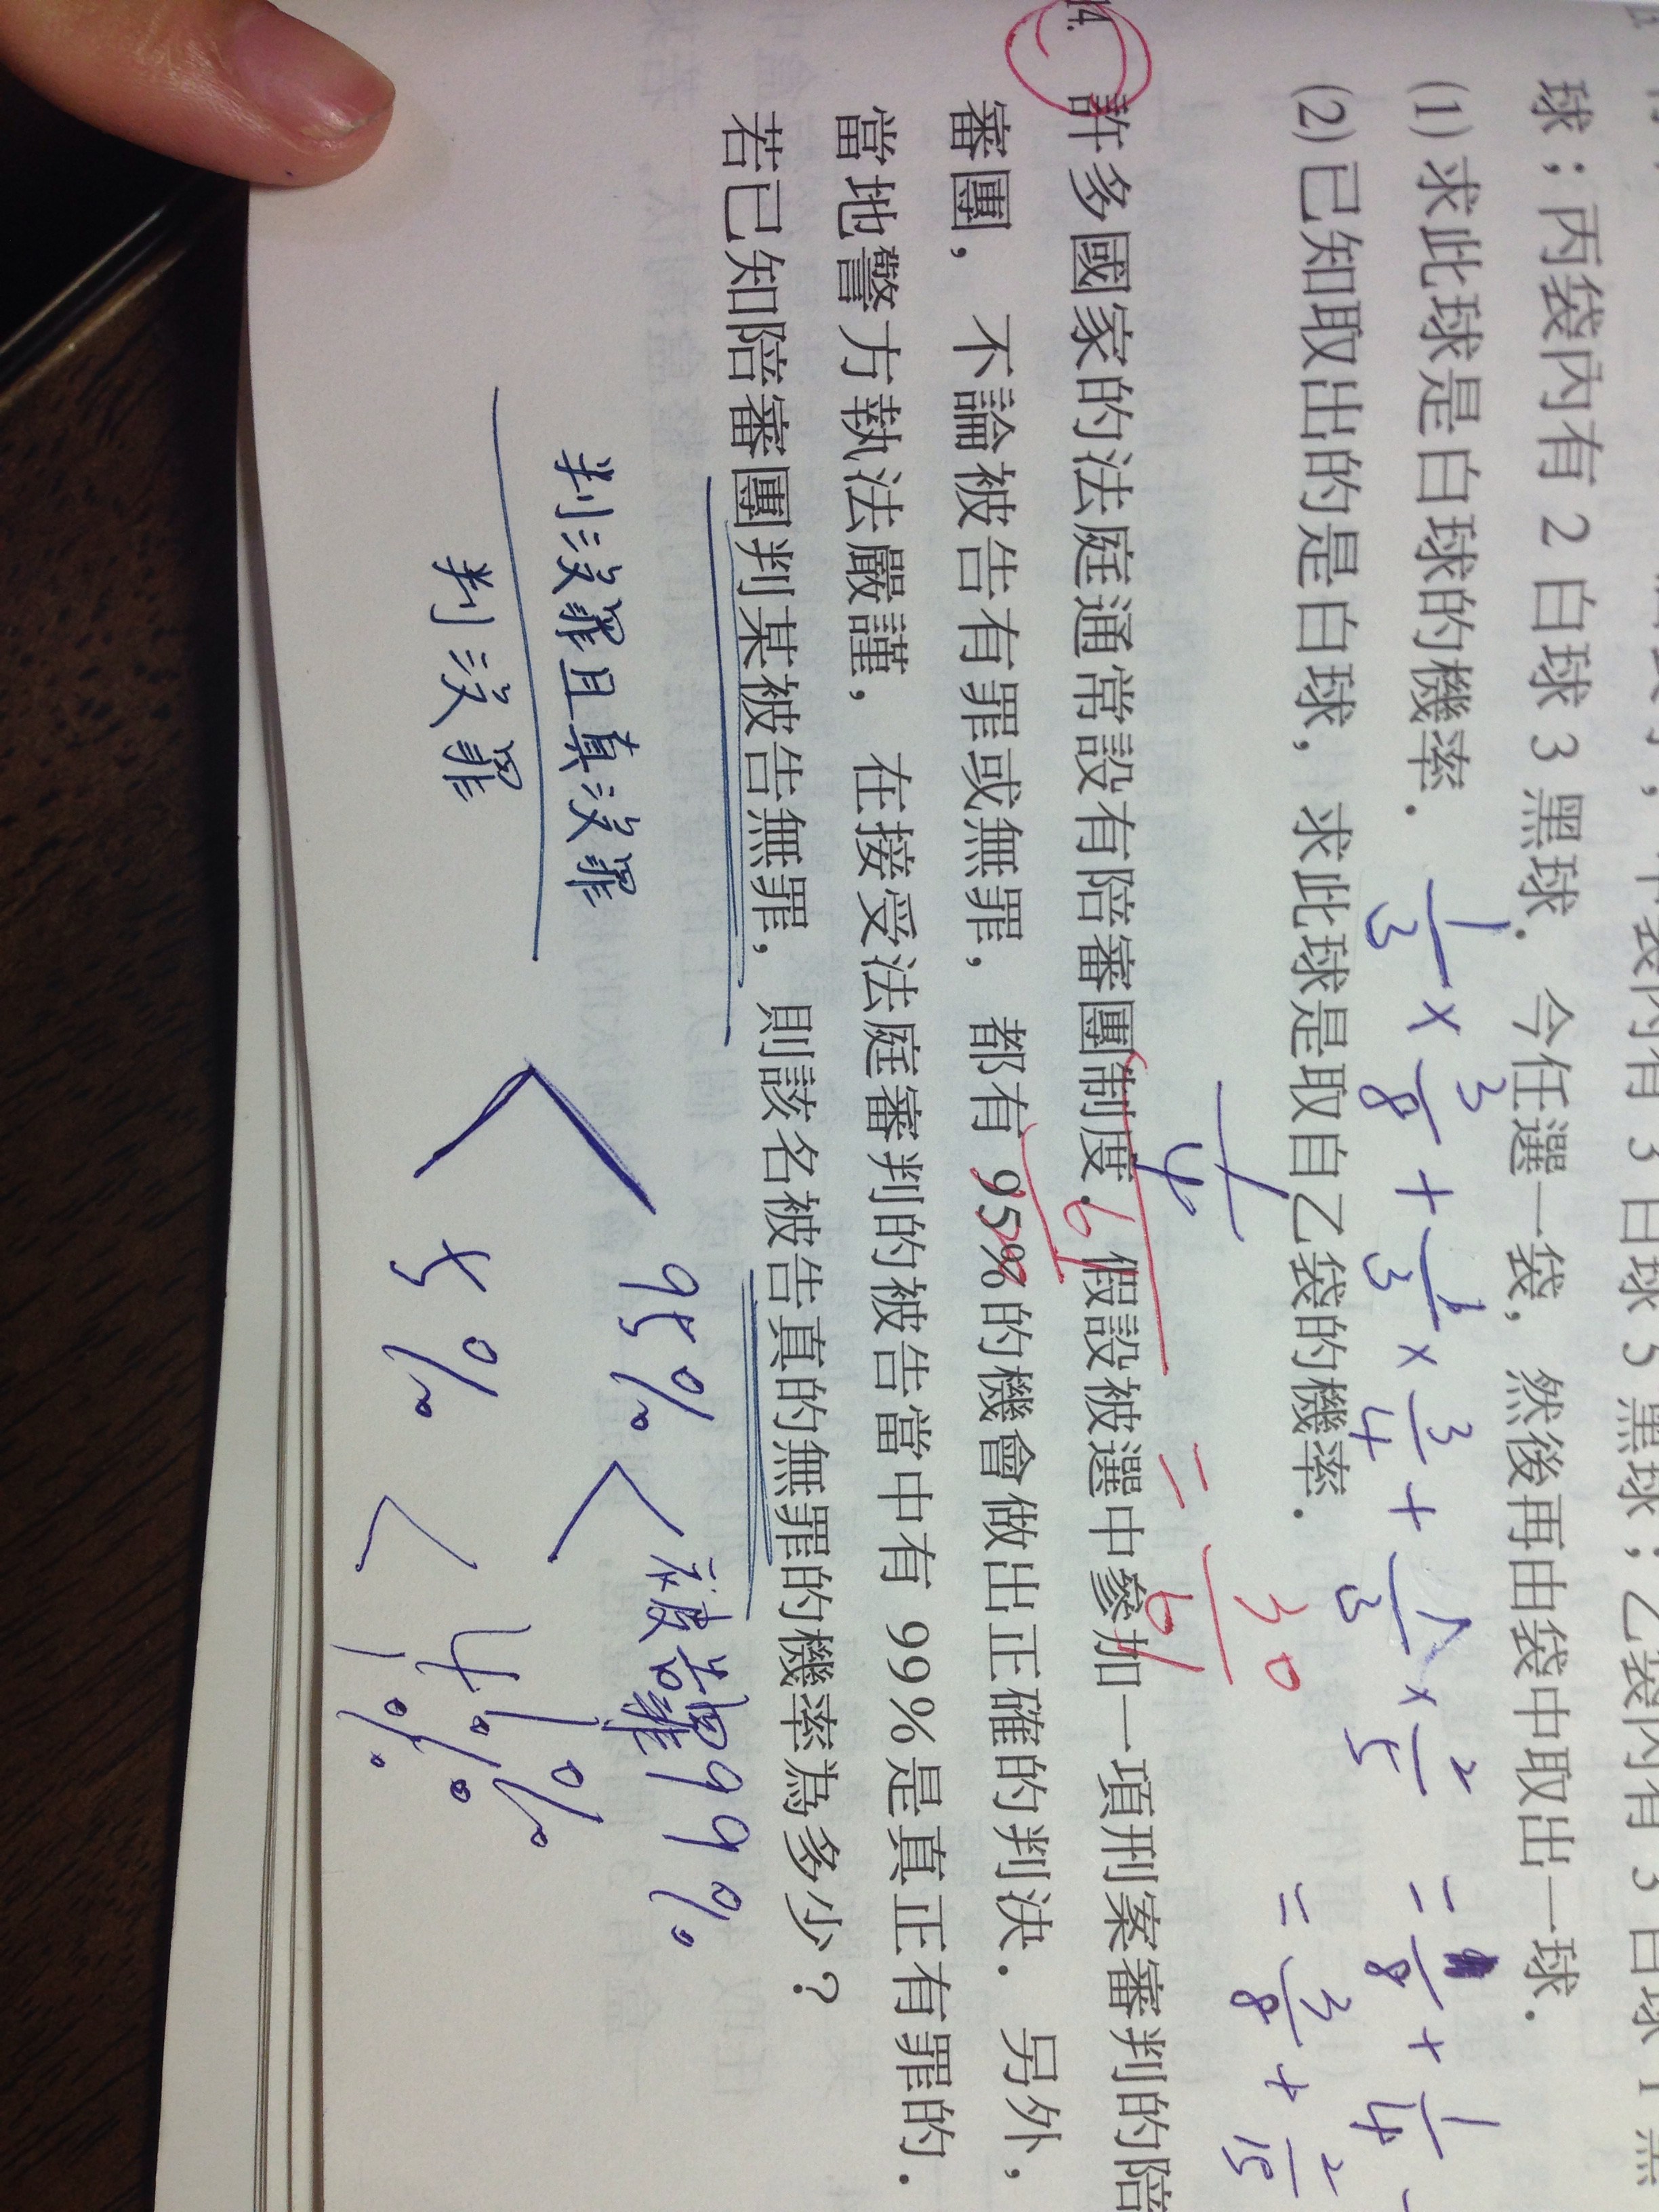 有 3 白球 5 黑球；乙袋內有 3 白球 1 黑
球；丙袋內有 2 白球 3 黑球．今任選一袋，然後再由袋中取出一球．
(1) 求此球是白球的機率．
1/3 × 3/8 + 1/3 × 3/4 + 1/3 × 2/5
= 1/8 + 1/4
(2) 已知取出的是白球，求此球是取自乙袋的機率．
= 3/8 + 2/15
1/4
= 30/61
14. 許多國家的法庭通常設有陪審團制度．假設被選中參加一項刑案審判的陪
審團，不論被告有罪或無罪，都有 95% 的機會做出正確的判決．另外，
當地警方執法嚴謹，在接受法庭審判的被告當中有 99% 是真正有罪的．
若已知陪審團判某被告無罪，則該名被告真的無罪的機率為多少？
判沒罪且真沒罪
判沒罪
95% < 被告罪 99%
1%
5% <
1%